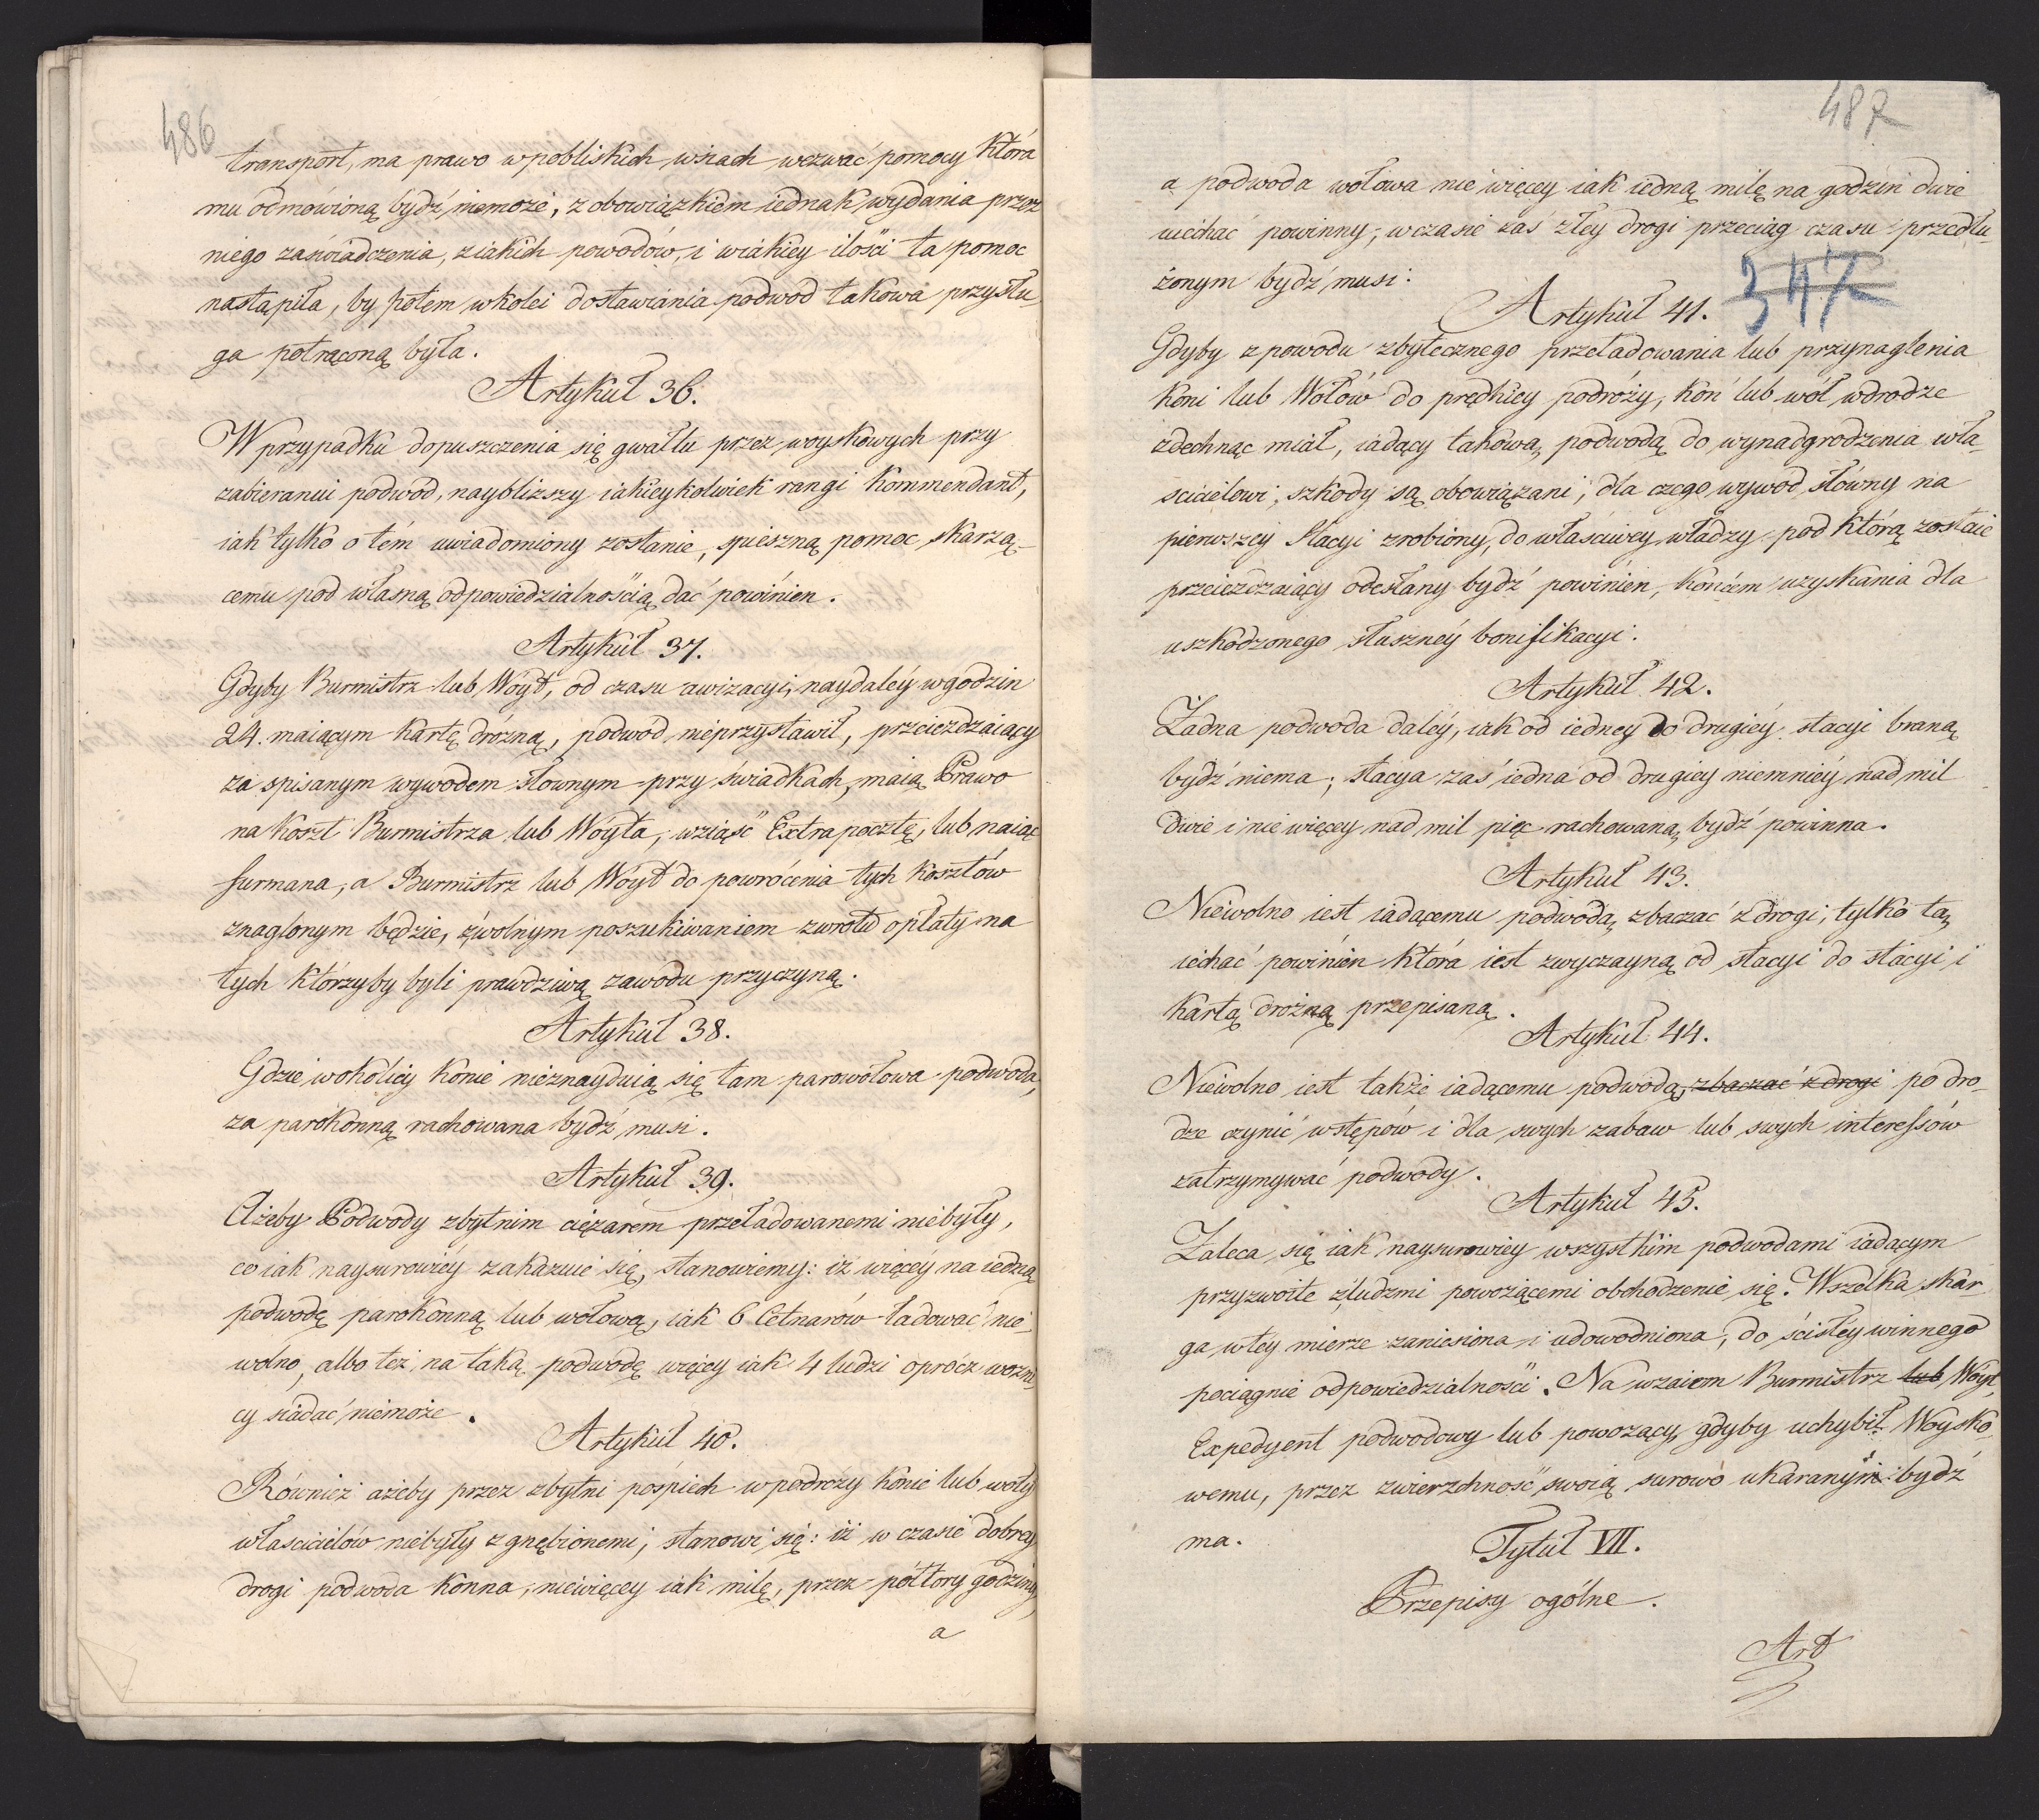 486
transport, ma prawo w pobliskich wsiach wezwać pomocy która
mu odmówioną bydź niemoże, z obowiązkiem iednak wydania przez
niego zaświadczenia, z iakich powodów, i w iakiey ilości ta pomoc
nastąpiła, by potem w kolei dostawiania podwod takowa przysłu-
ga potrąconą była.
Artykuł 36.
W przypadku dopuszczenia się gwałtu przez woyskowych przy
zabieraniu podwód, naybliższy iakieykolwiek rangi Kommendant,
iak tylko o tém uwiadomiony zostanie, spieszną pomoc skarżą-
cemu pod własną odpowiedzialnością dać powinien.
Artykuł 37.
Gdyby Burmistrz lub Wóyt, od czasu awizacyi, naydaléy w godzin
24. maiącym kartę drózną, podwód nieprzystawił, przeieżdżaiący
za spisanym wywodem słownym przy świadkach, maią Prawo
na koszt Burmistrza lub Wóyta, wziąść Extrapocztę, lub naiąć
furmana, a Burmistrz lub Wóyt do powrócenia tych kosztów
znaglonym będzie, z wolnym poszukiwaniem zwrotu opłaty na
tych którzyby byli prawdziwą zawodu przyczyną.
Artykuł 38.
Gdzie w okolicy konie nieznayduią się tam parowołowa podwoda,
za parokonną rachowana bydź musi.
Artykuł 39.
Ażeby Podwody zbytnim ciężarem przeładowanemi niebyły,
co iak naysurowiéy zakazuie się, stanowiemy: iż więcéy na iedną
podwodę parokonną lub wołową, iak 6 Cetnarów ładować nie-
wolno, albo też na taką podwodę więcey iak 4 ludzi oprócz woźni-
cy siadać niemoże.
Artykuł 40.
Również ażeby przez zbytni pośpiech w podróży konie lub woły
właścicielów niebyły zgnębionemi, stanowi się: iż w czasie dobrey
drogi podwoda konna, niewięcey iak milę, przez półtory godziny,
a
487
a podwoda wołowa nie więcey iak iedną milę na godzin dwie
uiechać powinny, w czasie zaś złey drogi przeciąg czasu przedłu-
żonym bydź musi.
347
Artykuł 41.
Gdyby z powodu zbytecznego przeładowania lub przynaglenia
koni lub Wołów do prędkiey podróży, koń lub wół w drodze
zdechnąć miał, iadący takową podwodą do wynadgrodzenia wła-
scicielowi, szkody są obowiązani, dla czego wywod słówny na
pierwszey Stacyi zrobiony, do właściwey władzy pod którą zostaie
przeieżdżaiący odesłany bydź powinien, końcem uzyskania dla
uszkodzonego słusznéy bonifikacyi.
Artykuł 42.
Żadna podwoda daléy, iak od iedney do drugiéy stacyi braną
bydź niema; stacya zaś iedna od drugiey niemniéy nad mil
dwie i nie więcey nad mil pięć rachowaną bydź powinna.
Artykuł 43.
Niewolno iest iadącemu podwodą zbaczać z drogi, tylko tą
iechać powinien która iest zwyczayną od stacyi do stacyi i
kartą drożną przepisaną.
Artykuł 44.
Niewolno iest także iadącemu podwodą, zbaczać z drogi po dro-
dze czynić wstępów i dla swych zabaw lub swych interessów
zatrzymywać podwody.
Artykuł 45.
Zaleca się iak naysurowiey wszystkim podwodami iadącym
przyzwoite z ludzmi powożącemi obchodzenie się. Wszelka skar
ga w tey mierze zaniesiona i udowodniona, do ścisłey winnego
pociągnie odpowiedzialności. Na wzaiem Burmistrz lub Wóyt,
Expedyent podwodowy lub powożący gdyby uchybił Woysko-
wemu, przez zwierzchność swoią surowo ukaranym bydź
ma.
Tytuł VII.
Przepisy ogólne.
Art